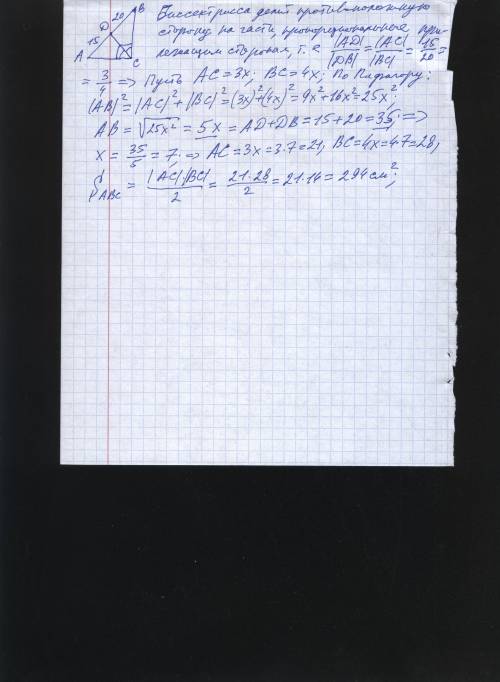 20 B Биссектриса делит противоположную
D сторону на части, пропорциональные при-
15 лежащим сторонам, т. е |AD|/|DB| = |AC|/|BC| = 15/20 =
A C
= 3/4 => Пусть AC = 3x; BC = 4x; По Пифагору:
|AB|² = |AC|² + |BC|² = (3x)² + (4x)² = 9x² + 16x² = 25x²;
AB = √25x² = 5x = AD + DB = 15 + 20 = 35; =>
x = 35/5 = 7; => AC = 3x = 3·7 = 21, BC = 4x = 4·7 = 28,
S ABC = |AC|·|BC|/2 = 21·28/2 = 21·14 = 294 см²;